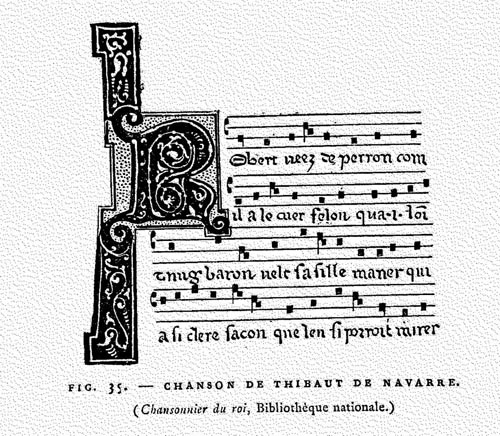 Robert veez de perron com
il a le cuer felon qua·i· loi
taing baron velt sa fille maner qui
a si clere facon que len si porroit mirer
FIG. 35. — CHANSON DE THIBAUT DE NAVARRE.
(Chansonnier du roi, Bibliothèque nationale.)